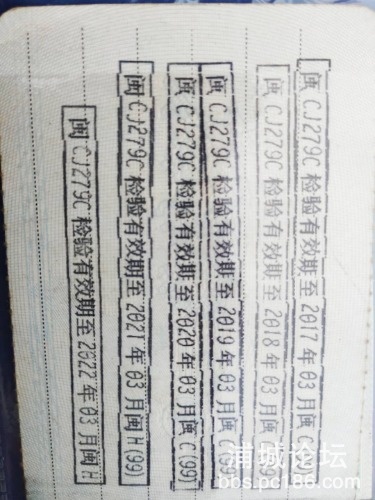 闽CJ279C 检验有效期至2017年03月闽C
闽CJ279C 检验有效期至2018年03月闽C
闽CJ279C 检验有效期至2019年03月闽C(99
闽CJ279C 检验有效期至2020年03月闽C(99)
闽CJ279C 检验有效期至2021年03月闽H(99)
闽CJ279C 检验有效期至2022年03月闽H
浦城论坛
bbs.pc186.com